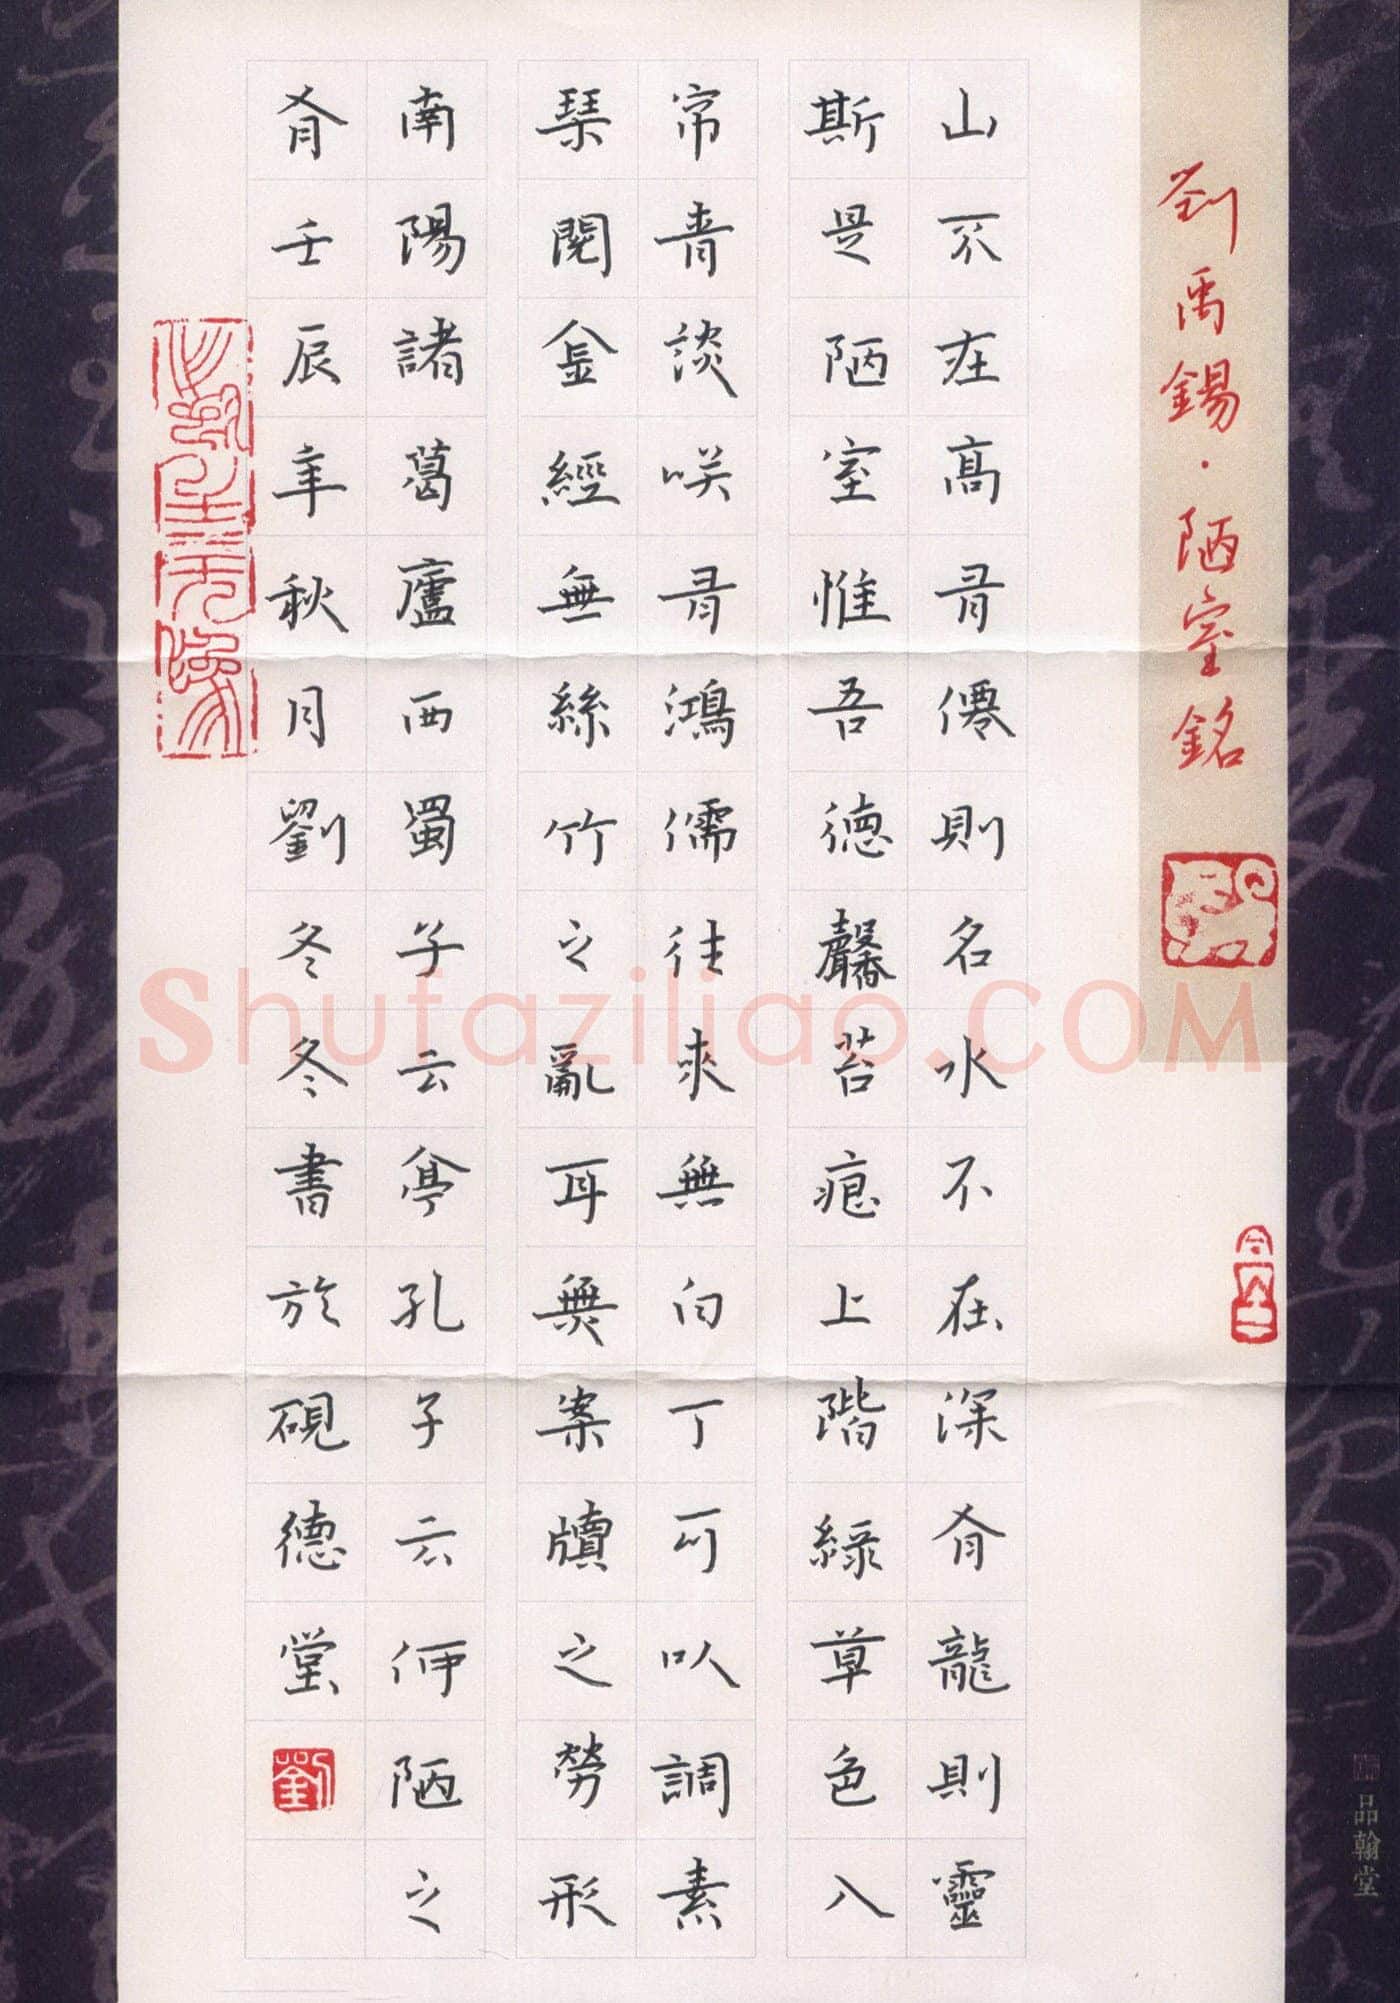 劉禹錫·陋室銘
山不在高有僊則名水不在深有龍則靈
斯是陋室惟吾德馨苔痕上階綠草色入
帘青談咲有鴻儒往來無白丁可以調素
琴閱金經無絲竹之亂耳無案牘之勞形
南陽諸葛廬西蜀子云亭孔子云何陋之
有壬辰年秋月劉冬冬書於硯德堂
劉
品翰堂
Shufaziliao.COM